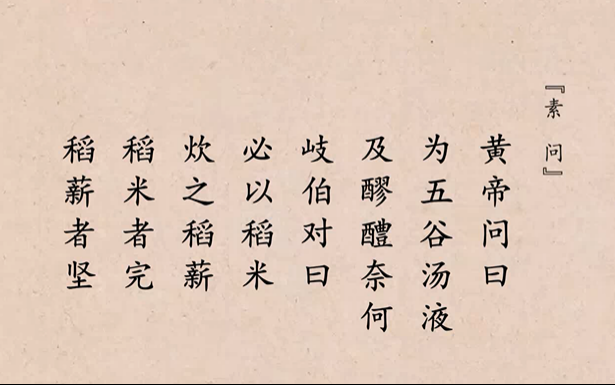 『素 问』
黄帝问曰
为五谷汤液
及醪醴奈何
岐伯对曰
必以稻米
炊之稻薪
稻米者完
稻薪者坚